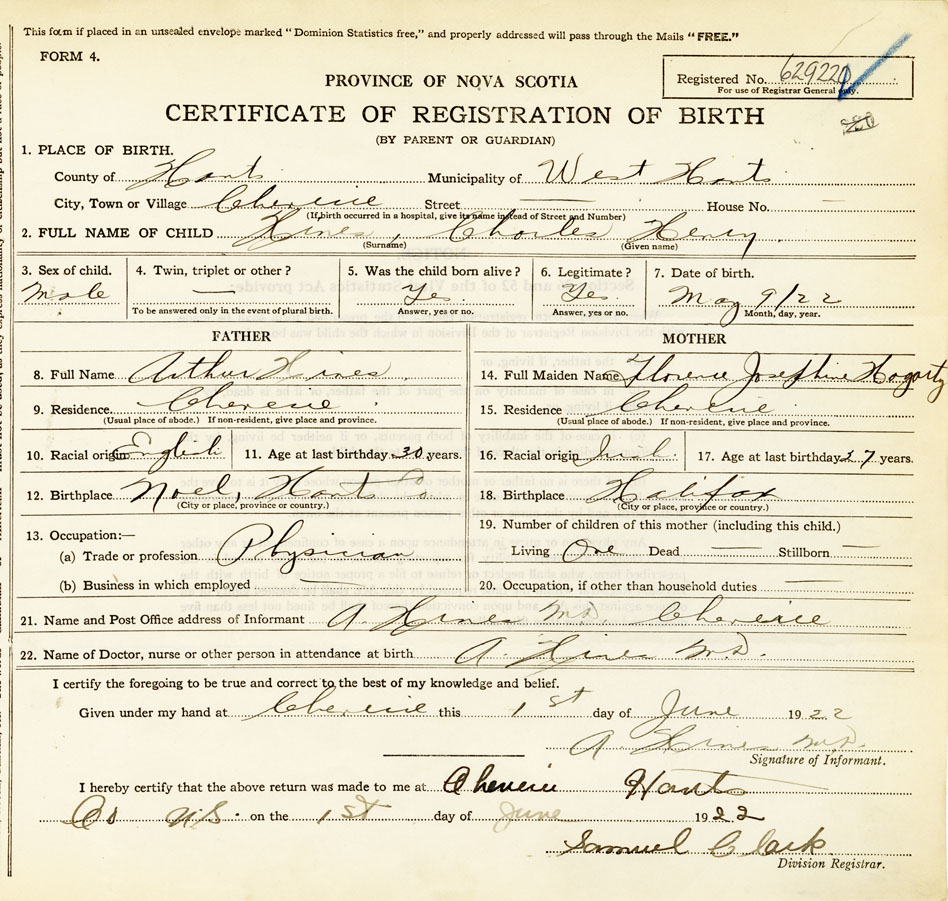 This form if placed in an unsealed envelope marked "Dominion Statistics free," and properly addressed will pass through the Mails "FREE."
FORM 4.
PROVINCE OF NOVA SCOTIA
Registered No. 629220
For use of Registrar General only.
CERTIFICATE OF REGISTRATION OF BIRTH
(BY PARENT OR GUARDIAN)
1. PLACE OF BIRTH.
County of Hants Municipality of West Hants
City, Town or Village Cheverie Street — House No. —
(If birth occurred in a hospital, give its name instead of Street and Number)
2. FULL NAME OF CHILD Hines, Charles Henry
(Surname) (Given name)
3. Sex of child. 4. Twin, triplet or other? 5. Was the child born alive? 6. Legitimate? 7. Date of birth.
Male — Yes. Yes. May 9/22
To be answered only in the event of plural birth. Answer, yes or no. Answer, yes or no. Month, day, year.
FATHER MOTHER
8. Full Name Arthur Hines 14. Full Maiden Name Florence Josephine Hogarty
9. Residence. Cheverie 15. Residence Cheverie
(Usual place of abode.) If non-resident, give place and province. (Usual place of abode.) If non-resident, give place and province.
10. Racial origin English 11. Age at last birthday 30 years. 16. Racial origin Irish. 17. Age at last birthday 27 years.
12. Birthplace Noel, Hants Co 18. Birthplace Halifax
(City or place, province or country.) (City or place, province or country.)
13. Occupation:— 19. Number of children of this mother (including this child.)
(a) Trade or profession Physician Living One Dead — Stillborn —
(b) Business in which employed — 20. Occupation, if other than household duties
21. Name and Post Office address of Informant A Hines M.D. Cheverie
22. Name of Doctor, nurse or other person in attendance at birth A. Hines M.D.
I certify the foregoing to be true and correct to the best of my knowledge and belief.
Given under my hand at Cheverie this 1st day of June 1922
A Hines M.D.
Signature of Informant.
I hereby certify that the above return was made to me at Cheverie Hants
Co N.S. on the 1st day of June 1922
Samuel Clark
Division Registrar.